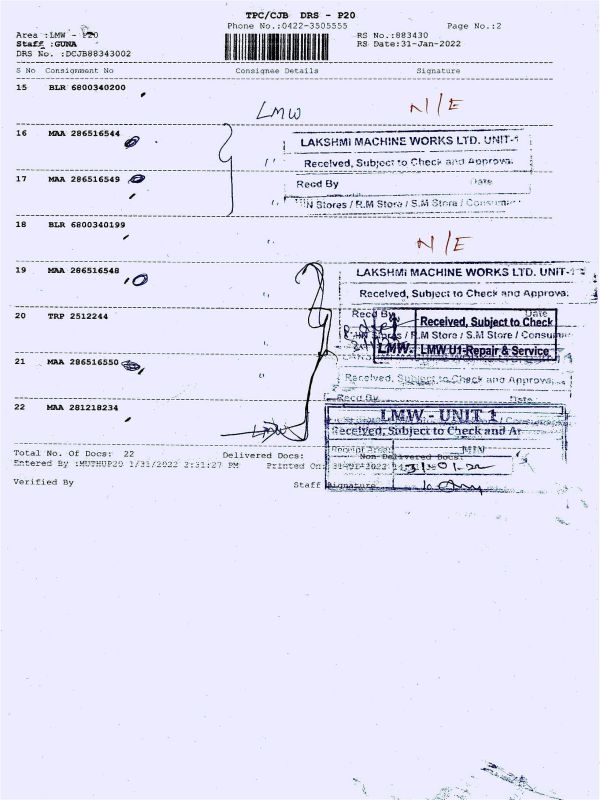 TPC/CJB DRS - P20
Phone No.:0422-3505555 Page No.:2
Area :LMW - P20 RS No.:883430
Staff :GUNA RS Date:31-Jan-2022
DRS No. :DCJB88343002
S No Consignment No Consignee Details Signature
15 BLR 6800340200
LMW N/E
16 MAA 286516544
LAKSHMI MACHINE WORKS LTD. UNIT-1
Received, Subject to Check and Approval
17 MAA 286516549
Recd By Date
Stores / R.M Store / S.M Store / Consumer
18 BLR 6800340199
N/E
19 MAA 286516548
LAKSHMI MACHINE WORKS LTD. UNIT-1
Received, Subject to Check and Approval
20 TRP 2512244
Recd By Date
Received, Subject to Check
R.M Store / S.M Store /
LMW. LMW U1-Repair & Service
21 MAA 286516550
Received, Subject to Check and Approval
Recd By Date
22 MAA 281218234
LMW
LMW - UNIT 1
Received, Subject to Check and
Total No. Of Docs: 22 Delivered Docs: Non-Delivered Docs:
Entered By :MUTHUP20 1/31/2022 2:31:27 PM Printed On:
31.01.22
Verified By Staff Signature